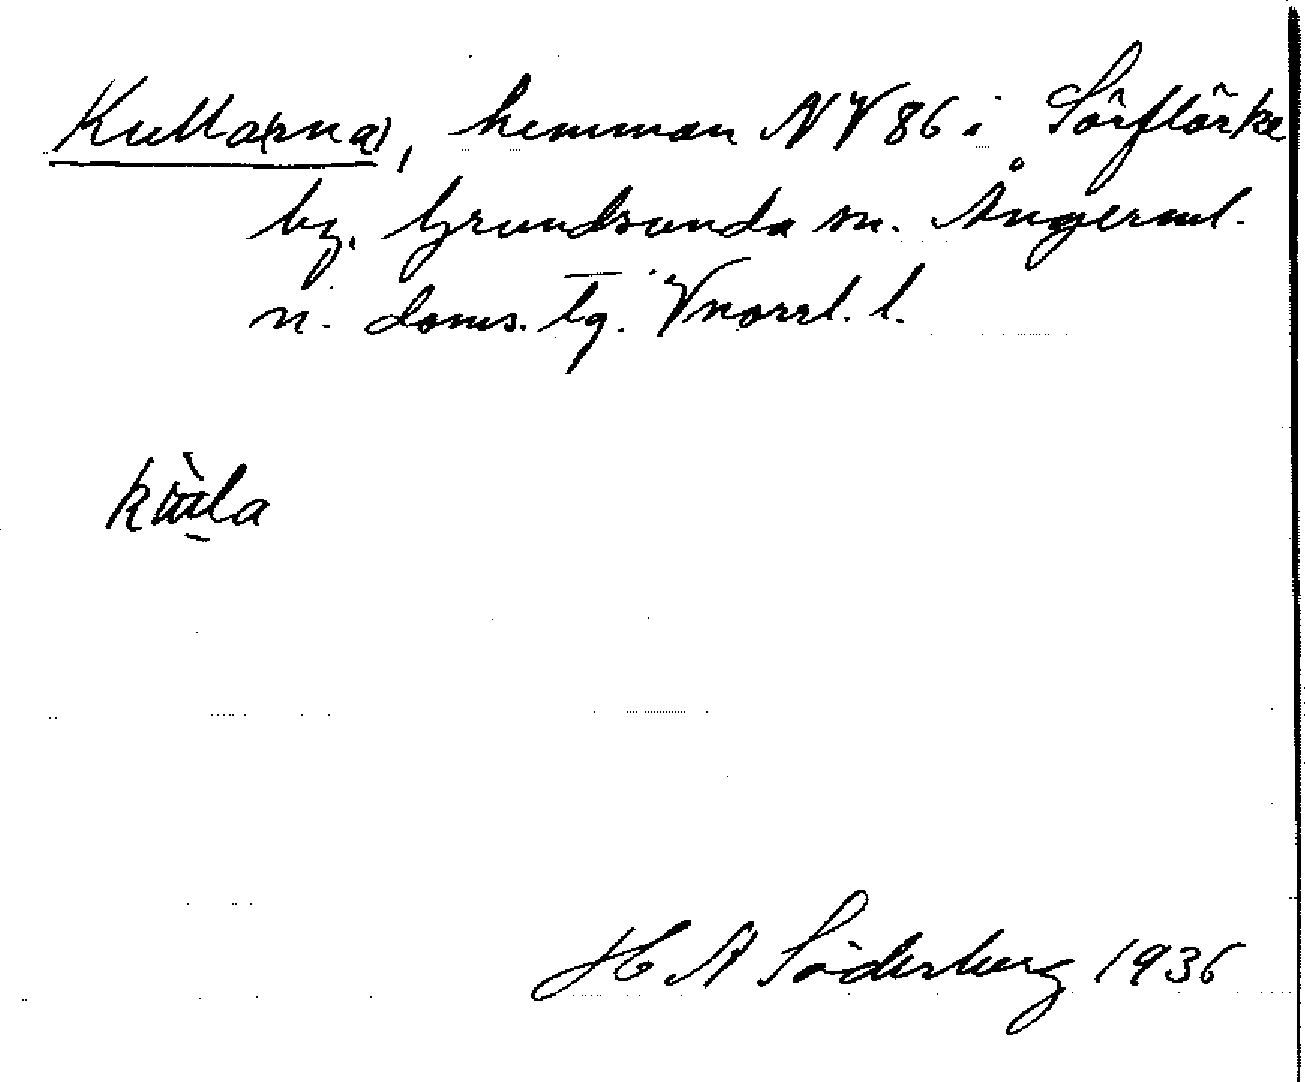 Kulla(rna), hemman NV 86 i Sörflärke
by. Grundsunda sn. Ångerml.
n. doms. tg. Vnorrl. l.
H A Söderberg 1936